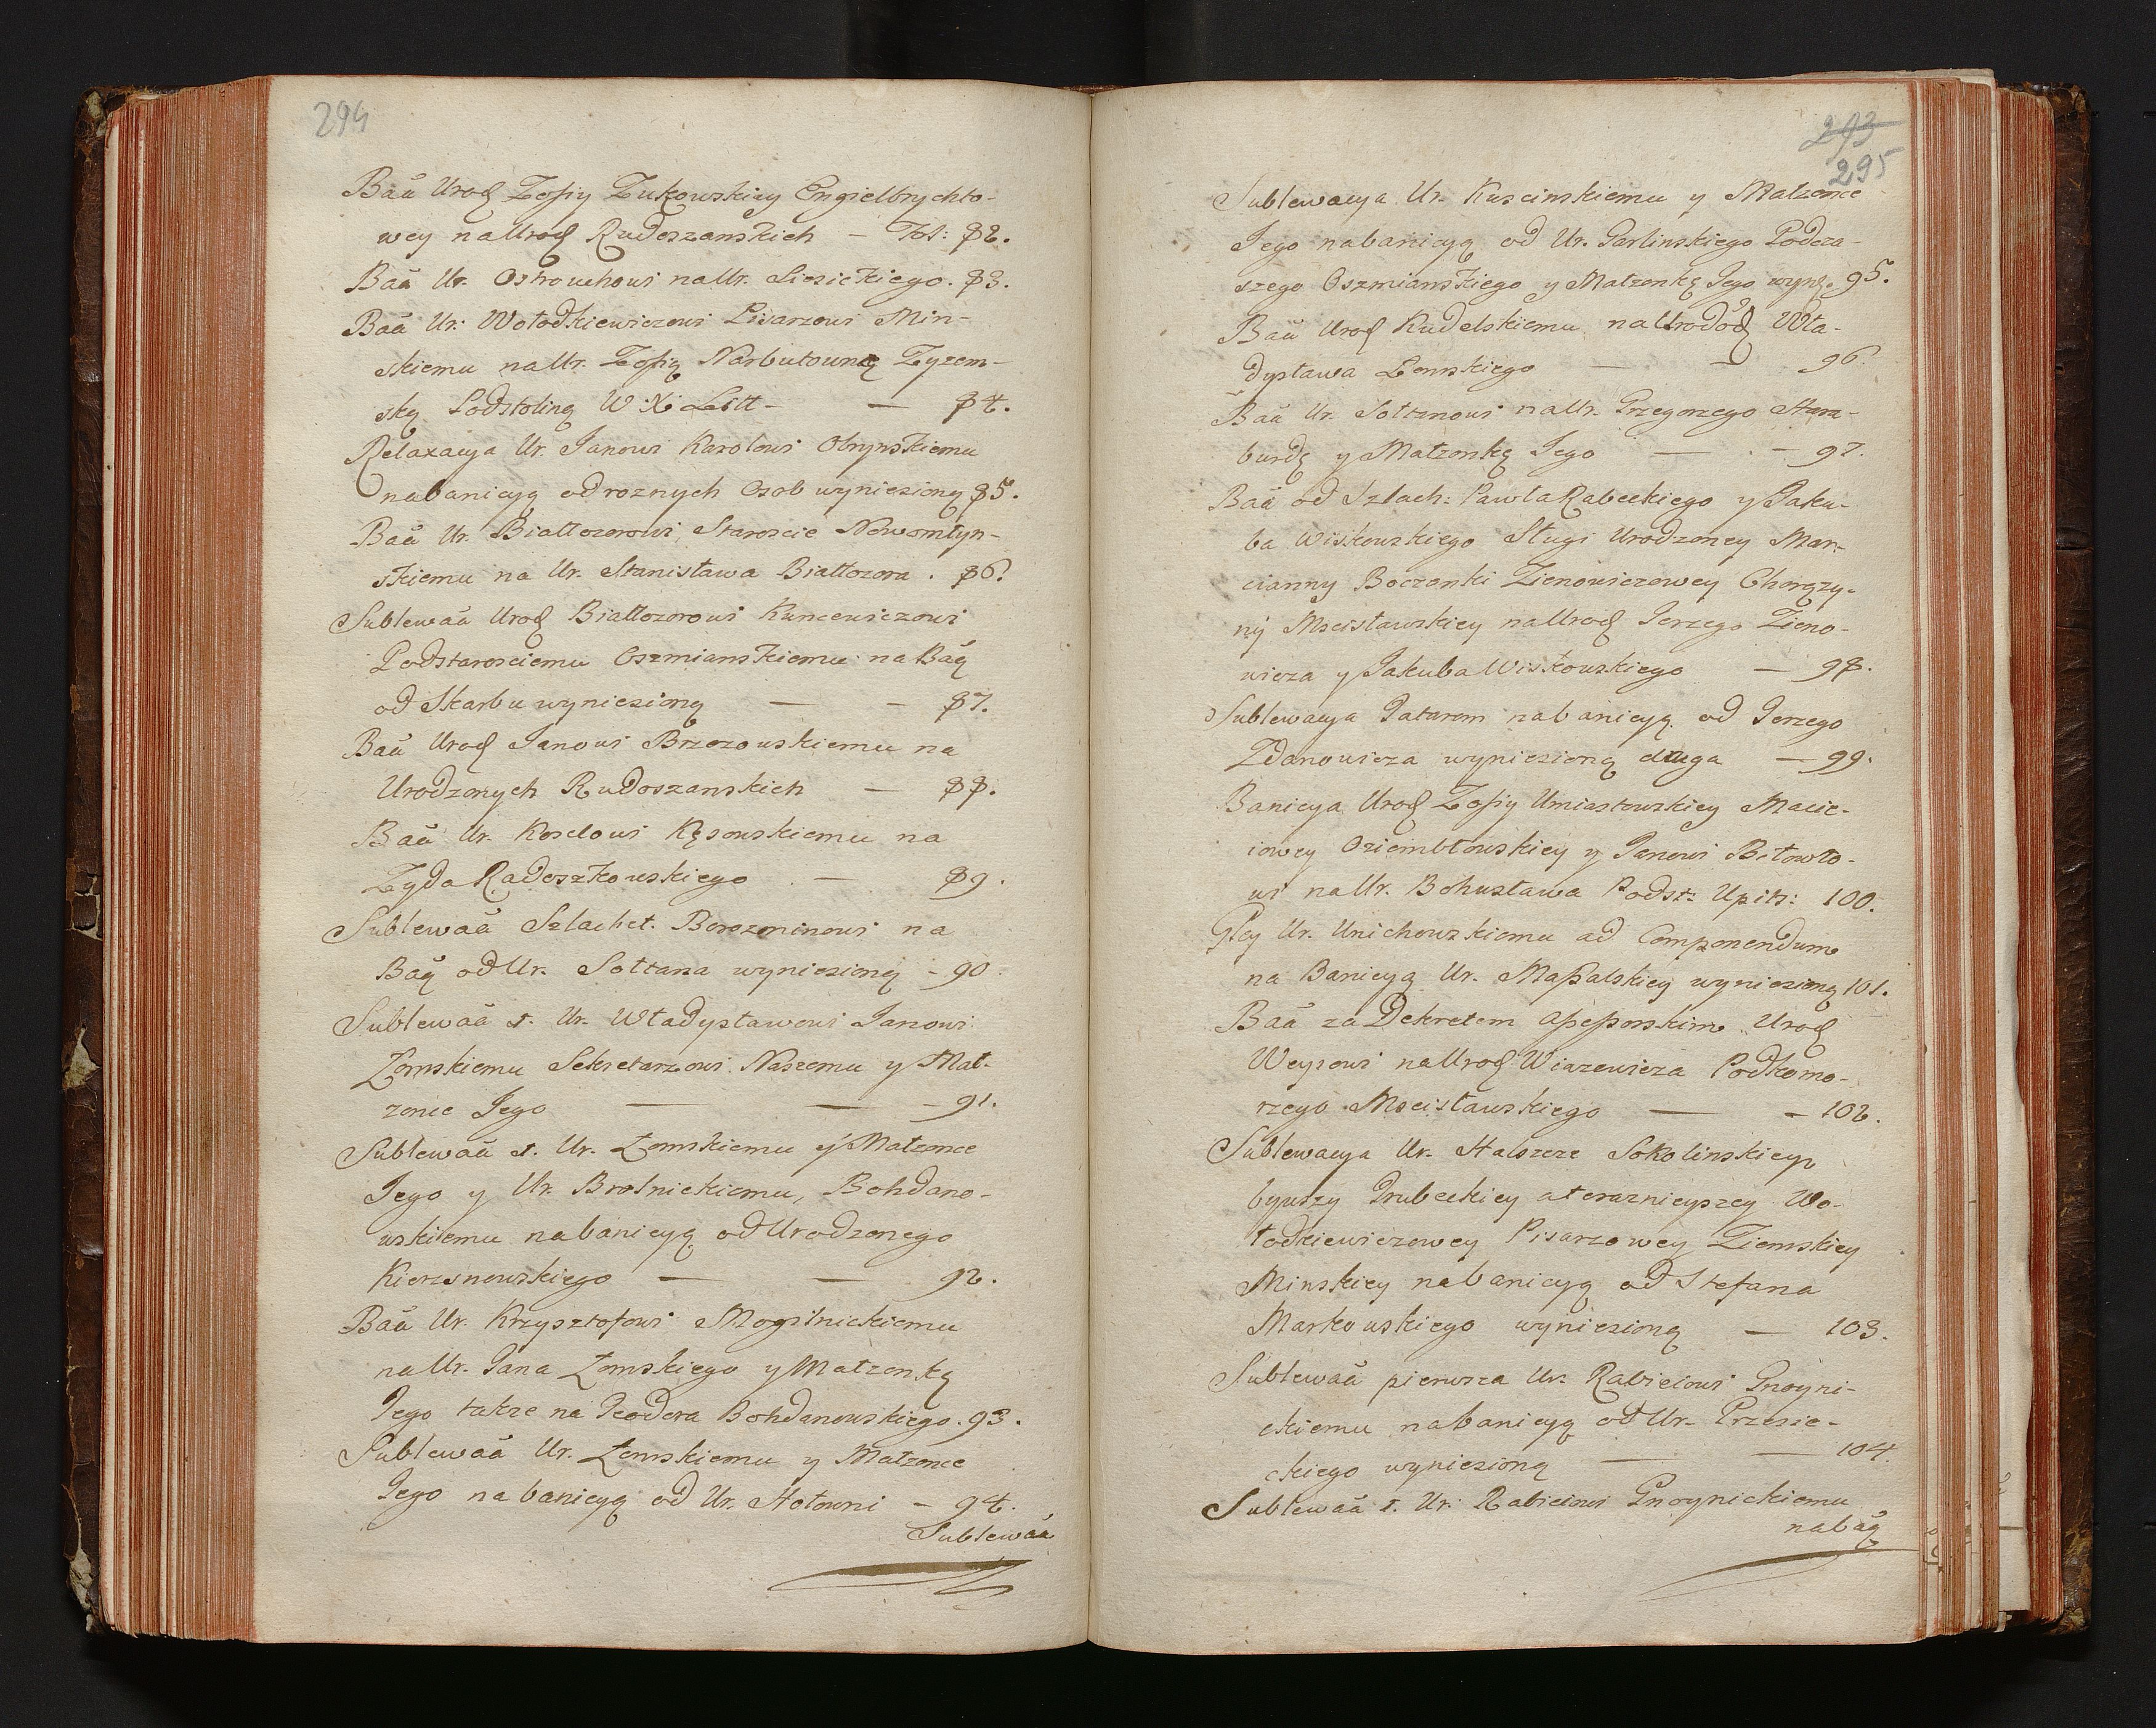 294
Baä Urod Zofiy Żukowskiey Engielbrychto-
wey na Urod Rudoszanskich — Fol: 82.
Baä Ur. Ostrouchowi na Ur. Liesickiego. 83.
Baä Ur: Wołodkiewiczowi Pisarzowi Min-
skiemu na Ur. Zofią Narbutowną Zyzem-
ską Podstoliną W: X: Litt — — 84.
Relaxacya Ur. Janowi Karolowi Obrynskiemu
na banicyą od roznych Osob wyniesioną 85.
Baä Ur. Białłozorowi, Staroscie Nowomłyn-
skiemu na Ur. Stanisława Białłozora. 86.
Sublewaä Urod Białłozorowi Kuncewiczowi
Podstarosciemu Oszmianskiemu na Bäą
od Skarbu wyniesioną — — 87.
Baä Urod Janowi Brzozowskiemu na
Urodzonych Rudoszanskich — 88.
Baä Ur. Kosełowi Kęsowskiemu na
Zyda Radoszkowskiego — 89.
Sublewaä Szlachet. Borozninowi na
Bäą od Ur. Sołtana wyniesioną – 90.
Sublewaä 1. Ur. Władysławowi Janowi
Łomskiemu Sekretarzowi Naszemu y Mał-
zonce Jego — — – 91.
Sublewaä 1. Ur. Łomskiemu y Małzonce
Jego y Ur. Brolnickiemu, Bohdano-
wskiemu na banicyą od Urodzonego
Kierznowskiego — — 92.
Baä Ur. Krzysztofowi Mogilnickiemu
na Ur. Jana Łomskiego y Małzonkę
Jego takze na Teodora Bohdanowskiego. 93.
Sublewaä Ur. Łomskiemu y Małzonce
Jego na banicyą od Ur. Hołowni – 94.
Sublewaä
293
295
Sublewacya Ur. Kuscinskiemu y Małzonce
Jego na banicyą od Ur. Parlinskiego Podcza-
szego Oszmianskiego y Małzonkę Jego wynż. 95.
Baä Urod Kudelskiemu na Urodod Wła-
dysława Łomskiego — — 96.
Baä Ur. Sołtanowi na Ur. Grzegorzego Skara-
burdę y Małzonkę Jego — – 97.
Baä od Szlach: Pawła Rabeckiego y Jaku-
ba Wiskowskiego Sługi Urodzoney Mar-
cianny Boczonki Zienowiczowey Chorązy-
ny Mscisławskiey na Urod Jerzego Zieno-
wicza y Jakuba Wiskowskiego — 98.
Sublewacya Tatarom na banicyą od Jerzego
Zdanowicza wyniesioną druga — 99.
Banicya Urod Zofiy Umiastowskiey Macie-
iowey Oziembłowskiey y Janowi Bitowto-
wi na Ur. Bohusława Podst: Upit: 100.
Gley Ur. Unichowskiemu ad Componendum
na Banicyą Ur. Massalskiey wyniesioną 101.
Baä za Dekretem Assessorskim Urod
Weysowi na Urod Wiazewicza Podkomo-
rzego Mscisławskiego — – 102.
Sublewacya Ur. Halszce Sokolinskiey
bywszy Drubeckiey a teraznieyszey Wo-
łodkiewiczowey Pisarzowey Ziemskiey
Minskiey na banicyą od Stefana
Markowskiego wyniesioną — 103.
Sublewaä pierwsza Ur. Rabieiowi Gnoyni-
ckiemu na banicyą od Ur. Przesie-
ckiego wyniesioną — — 104.
Sublewaä 1. Ur. Rabieiowi Gnoynickiemu
na bäą